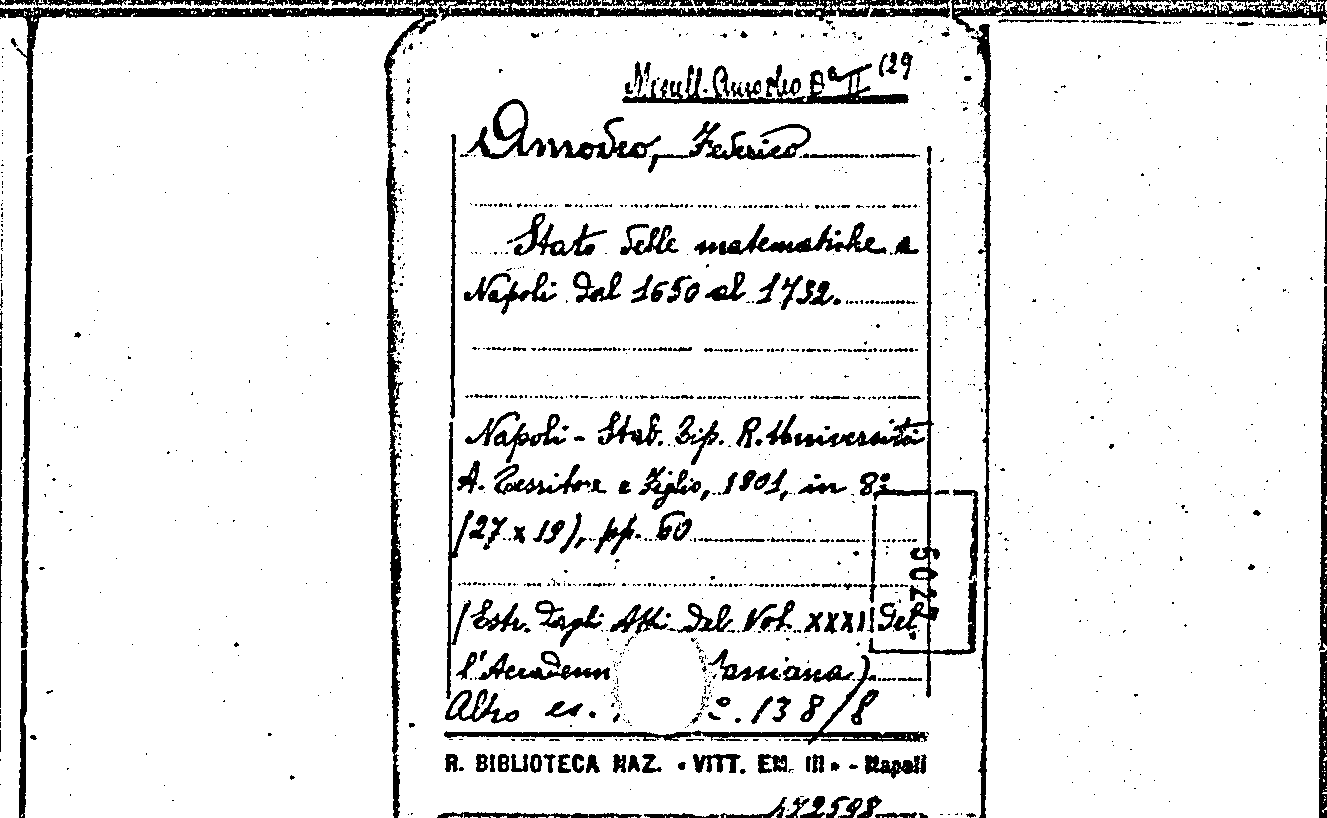 Miscell. Amodeo Bª II (29
Amodeo, Federico
Stato delle matematiche a
Napoli dal 1650 al 1732.
Napoli - Stab. Tip. R. Università
A. Tessitore e Figlio, 1801, in 8º
(27 x 19), pp. 60
(Estr. dagli Atti del Vol. XXXI del
l'Accadem aniana)
Altro es. 138/8
R. BIBLIOTECA NAZ. « VITT. EM. III » - Napoli
172598